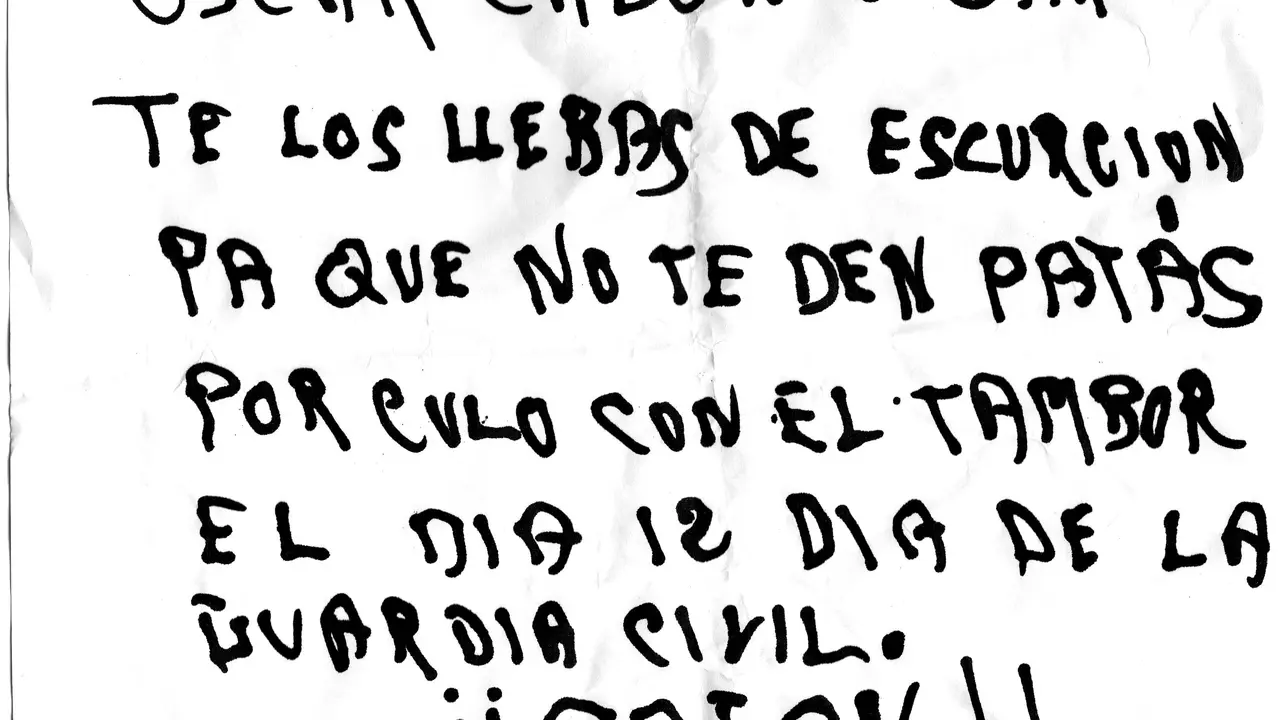 TE LOS LLEBAS DE ESCURCION
PA QUE NO TE DEN PATÁS
POR CULO CON EL TAMBOR
EL DIA 12 DIA DE LA
GUARDIA CIVIL.